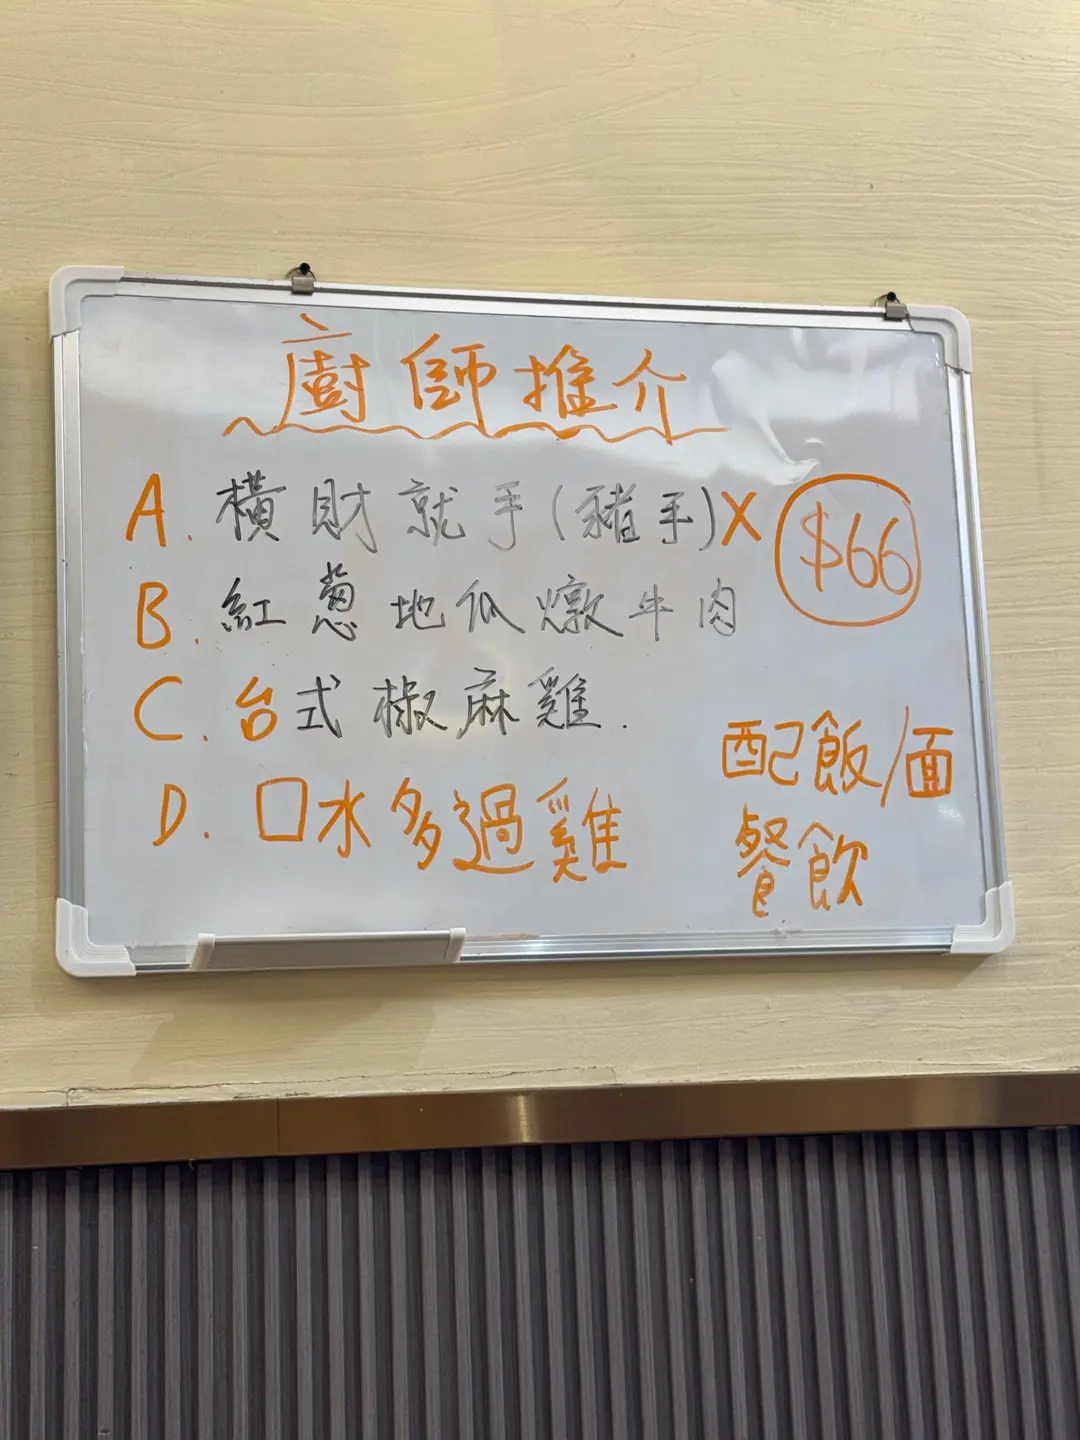 廚師推介
A. 橫財就手(豬手)X $66
B. 紅蔥地瓜燉牛肉
C. 台式椒麻雞.
D. 口水多過雞
配飯/面
餐飲